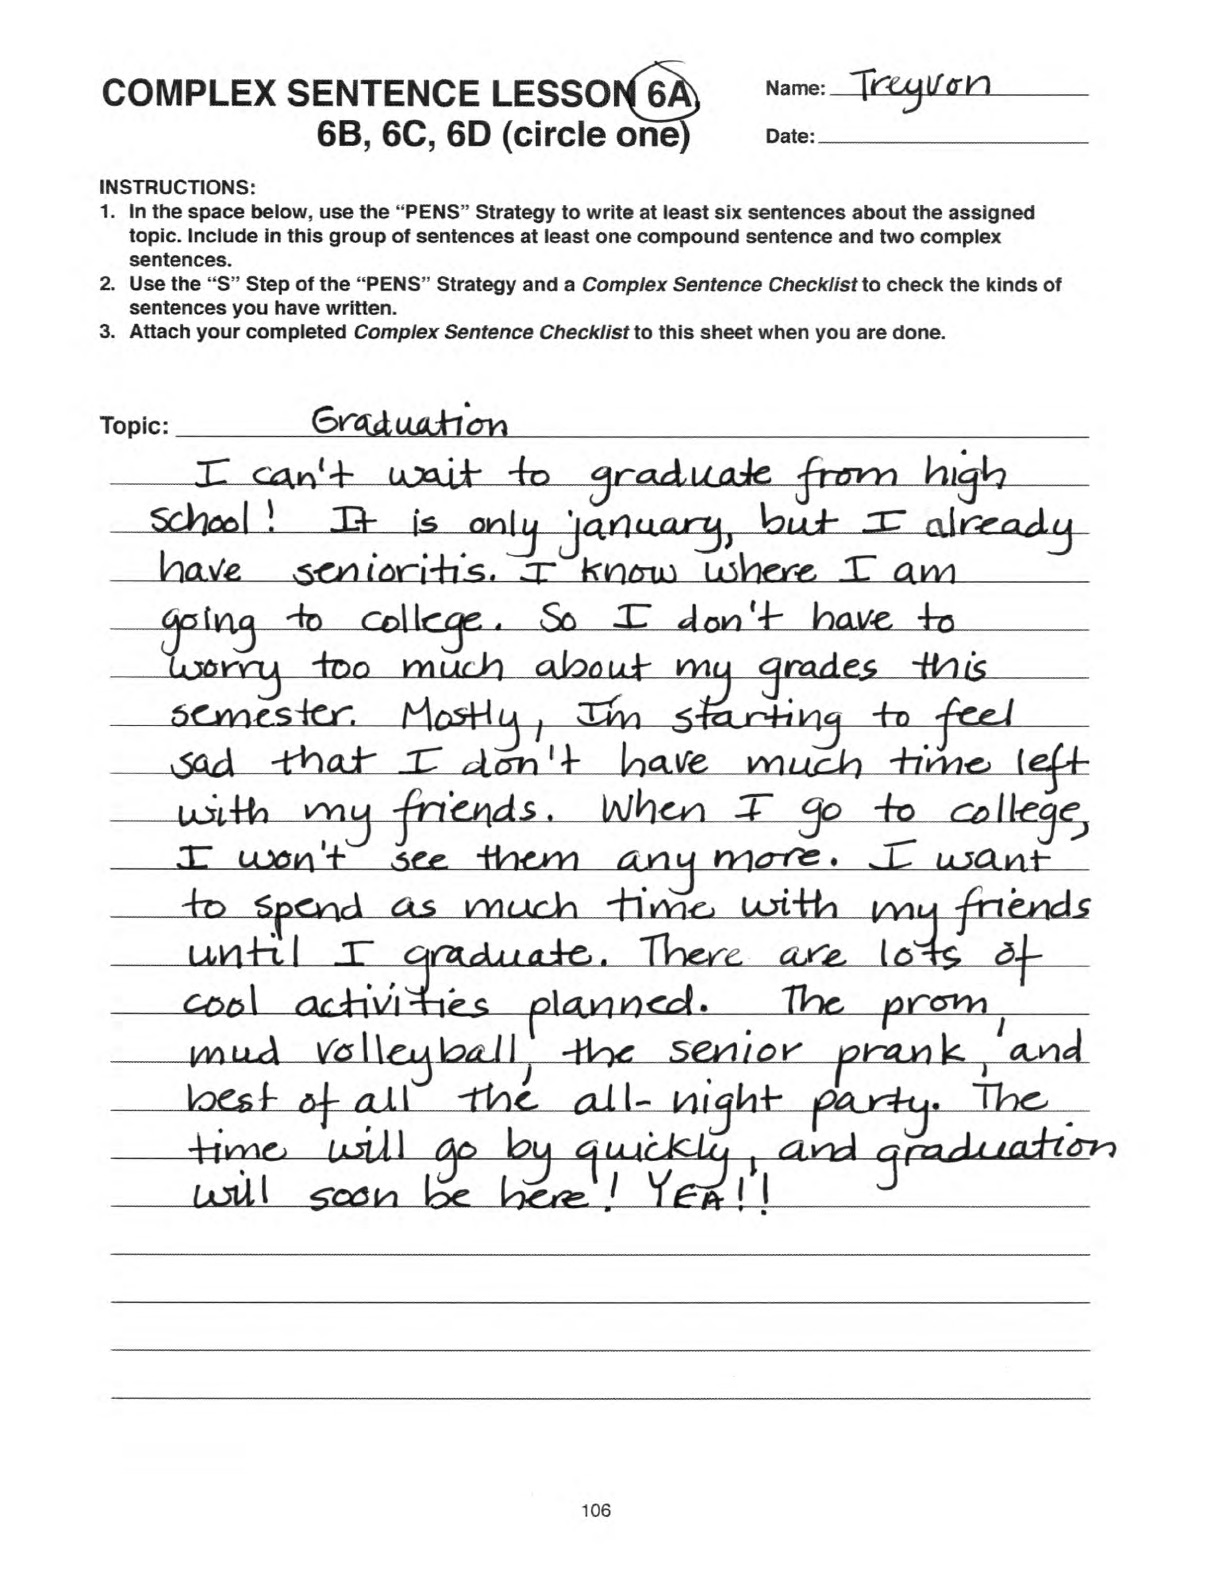 COMPLEX SENTENCE LESSON 6A,
6B, 6C, 6D (circle one)
Name: Treyvon
Date:
INSTRUCTIONS:
1. In the space below, use the “PENS” Strategy to write at least six sentences about the assigned
topic. Include in this group of sentences at least one compound sentence and two complex
sentences.
2. Use the “S” Step of the “PENS” Strategy and a Complex Sentence Checklist to check the kinds of
sentences you have written.
3. Attach your completed Complex Sentence Checklist to this sheet when you are done.
Topic: Graduation
I can't wait to graduate from high
school! It is only january, but I already
have senioritis. I know where I am
going to college. So I don't have to
worry too much about my grades this
semester. Mostly, I'm starting to feel
sad that I don't have much time left
with my friends. When I go to college,
I won't see them any more. I want
to spend as much time with my friends
until I graduate. There are lots of
cool activities planned. The prom,
mud volleyball, the senior prank, and
best of all the all-night party. The
time will go by quickly, and graduation
will soon be here! YEA!!
106